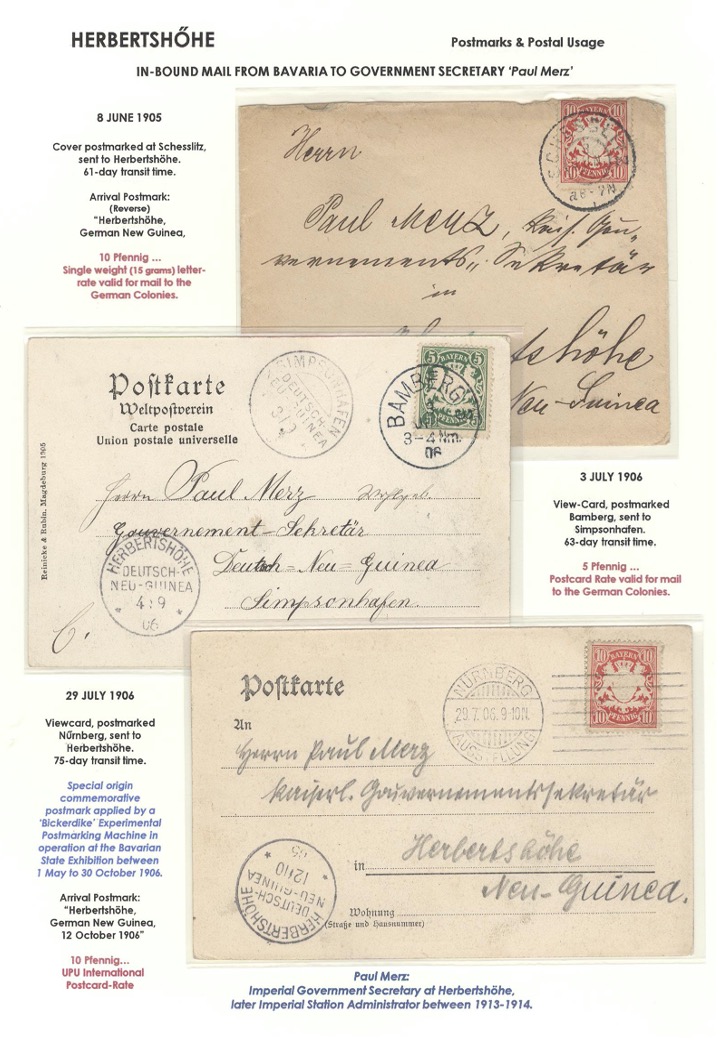 HERBERTSHŐHE
Postmarks & Postal Usage
IN-BOUND MAIL FROM BAVARIA TO GOVERNMENT SECRETARY ‘Paul Merz’
8 JUNE 1905
Cover postmarked at Schesslitz,
sent to Herbertshöhe.
61-day transit time.
Arrival Postmark:
(Reverse)
"Herbertshöhe,
German New Guinea,
10 Pfennig ...
Single weight (15 grams) letter-
rate valid for mail to the
German Colonies.
BAYERN
10 PFENNIG 10
Herrn
Paul Merz, Kais. Gou-
vernements-Sekretär
in
tshöhe
Neu-Guinea
Postkarte
Weltpostverein
Carte postale
Union postale universelle
SIMPSONHAFEN
DEUTSCH-
NEU-GUINEA
5 BAYERN 5
BAMBERG
3-4 Nm.
06
Reinicke & Rubin, Magdeburg 1905
Herrn Paul Merz
Gouvernement-Sekretär
Deutsch-Neu-Guinea
Simpsonhafen.
HERBERTSHÖHE
DEUTSCH-
NEU-GUINEA
4/9
06
3 JULY 1906
View-Card, postmarked
Bamberg, sent to
Simpsonhafen.
63-day transit time.
5 Pfennig ...
Postcard Rate valid for mail
to the German Colonies.
29 JULY 1906
Viewcard, postmarked
Nűrnberg, sent to
Herbertshöhe.
75-day transit time.
Special origin
commemorative
postmark applied by a
‘Bickerdike’ Experimental
Postmarking Machine in
operation at the Bavarian
State Exhibition between
1 May to 30 October 1906.
Arrival Postmark:
"Herbertshöhe,
German New Guinea,
12 October 1906"
10 Pfennig...
UPU International
Postcard-Rate
Postkarte
NÜRNBERG
29.7.06.9-10N.
AUSSTELLUNG
10 BAYERN 10
10 PFENNIG 10
An
Herrn Paul Merz
Kaiserl. Gouvernementssekretär
in Herbertshöhe
Neu-Guinea.
Wohnung
(Straße und Hausnummer)
HERBERTSHÖHE
DEUTSCH-
NEU-GUINEA
12/10
Paul Merz:
Imperial Government Secretary at Herbertshöhe,
later Imperial Station Administrator between 1913-1914.